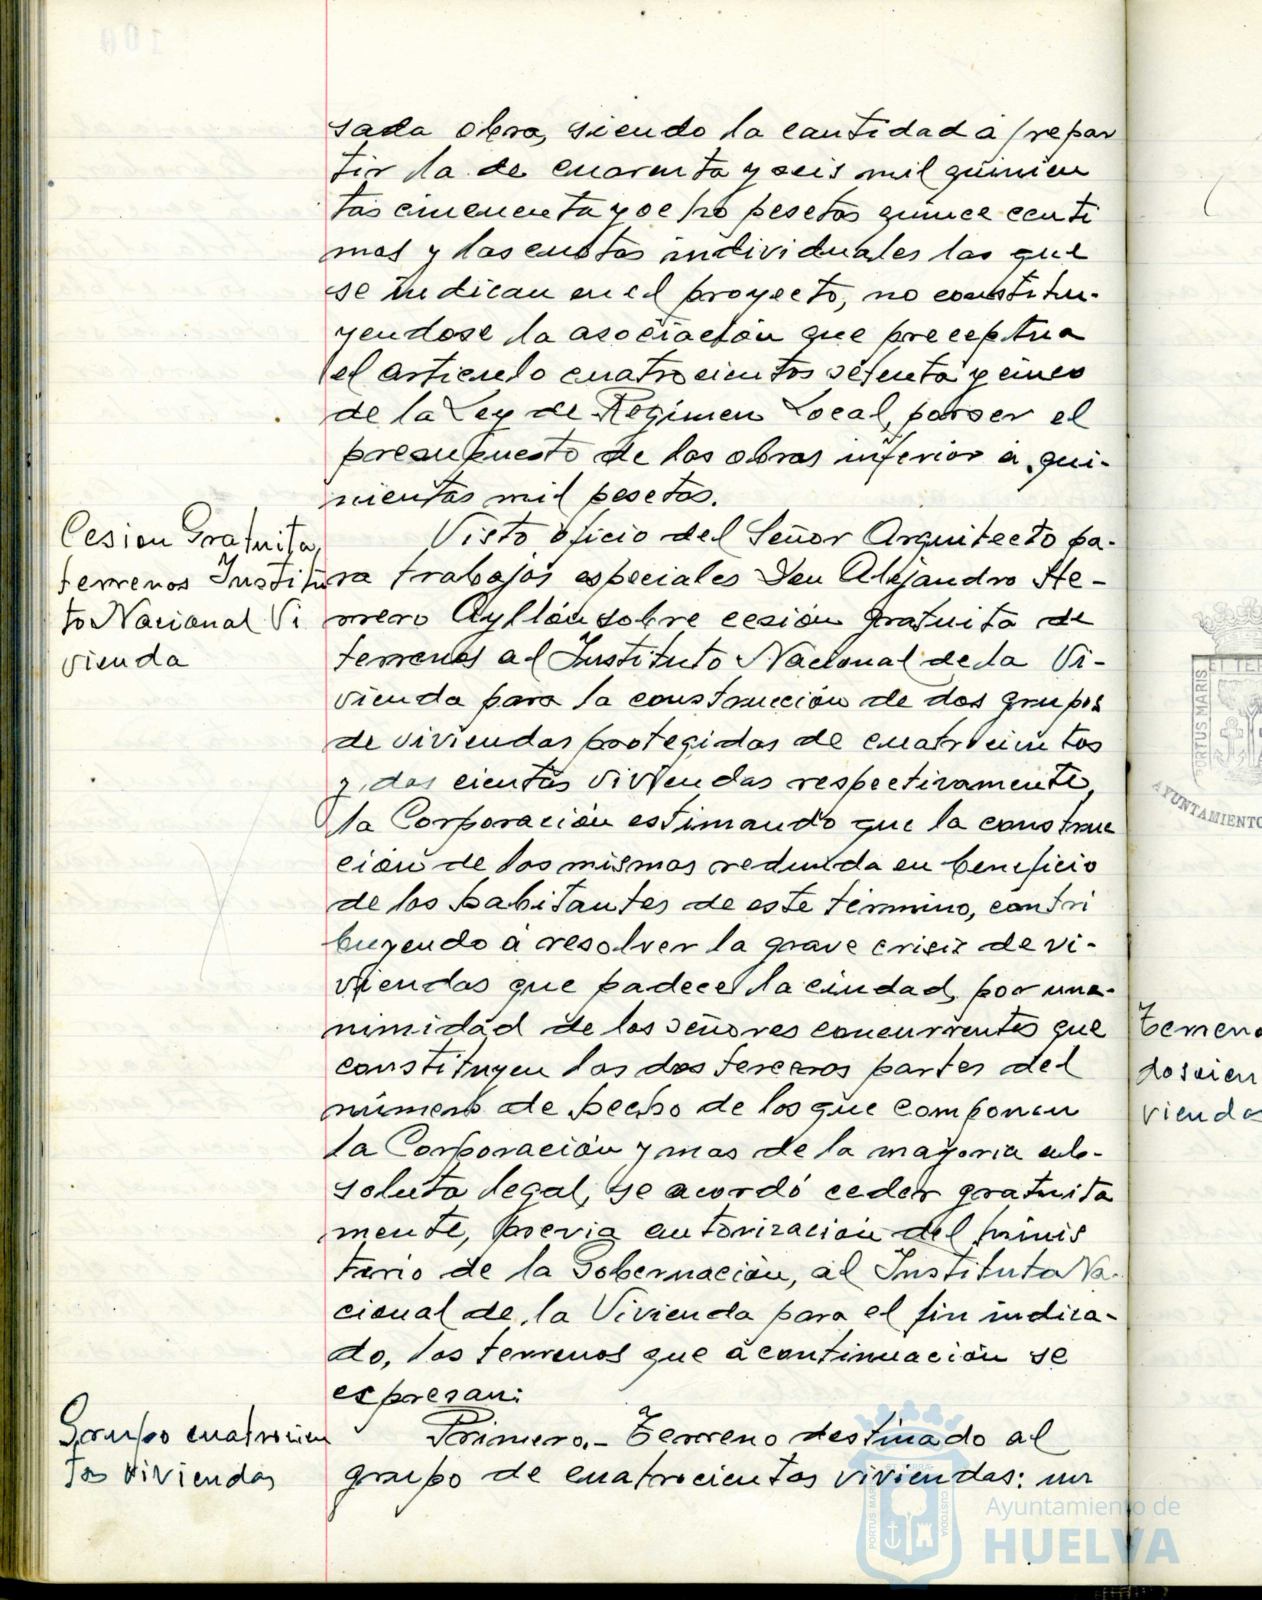 sada obra, siendo la cantidad á repar
tir la de cuarenta y seis mil quinien
tas cincuenta y ocho pesetas quince centi
mos y las cuotas individuales las que
se indican en el proyecto, no constitu-
yendose la asociación que preceptua
el articulo cuatrocientos setenta y cinco
de la Ley de Régimen Local, por ser el
presupuesto de las obras inferior a qui-
nientas mil pesetas.
Cesion Gratuita,
terrenos Institu
to Nacional Vi
vienda
Visto oficio del Señor Arquitecto pa-
ra trabajos especiales Don Alejandro He-
rrero Ayllón sobre cesión gratuita de
terrenos al Instituto Nacional de la Vi-
vienda para la construcción de dos grupos
de viviendas protegidas de cuatrocientos
y dos cientas viviendas respectivamente,
la Corporación estimando que la construc
ción de las mismas redunda en beneficio
de los habitantes de este término, contri
buyendo á resolver la grave crisis de vi-
viendas que padece la ciudad, por una-
nimidad de los señores concurrentes que
constituyen las dos terceras partes del
número de hecho de los que componen
la Corporación y mas de la mayoria ab-
soluta legal, se acordó ceder gratuita
mente, previa autorización del Minis
terio de la Gobernación, al Instituto Na-
cional de la Vivienda para el fin indica-
do, los terrenos que á continuación se
expresan:
Grupo cuatrocien
tas viviendas
Primero.- Terreno destinado al
grupo de cuatrocientas viviendas: un
Terreno
doscien
viendas
PORTUS MARIS
ET TER
AYUNTAMIENTO
PORTUS MARIS
CUSTODIA
Ayuntamiento de
HUELVA